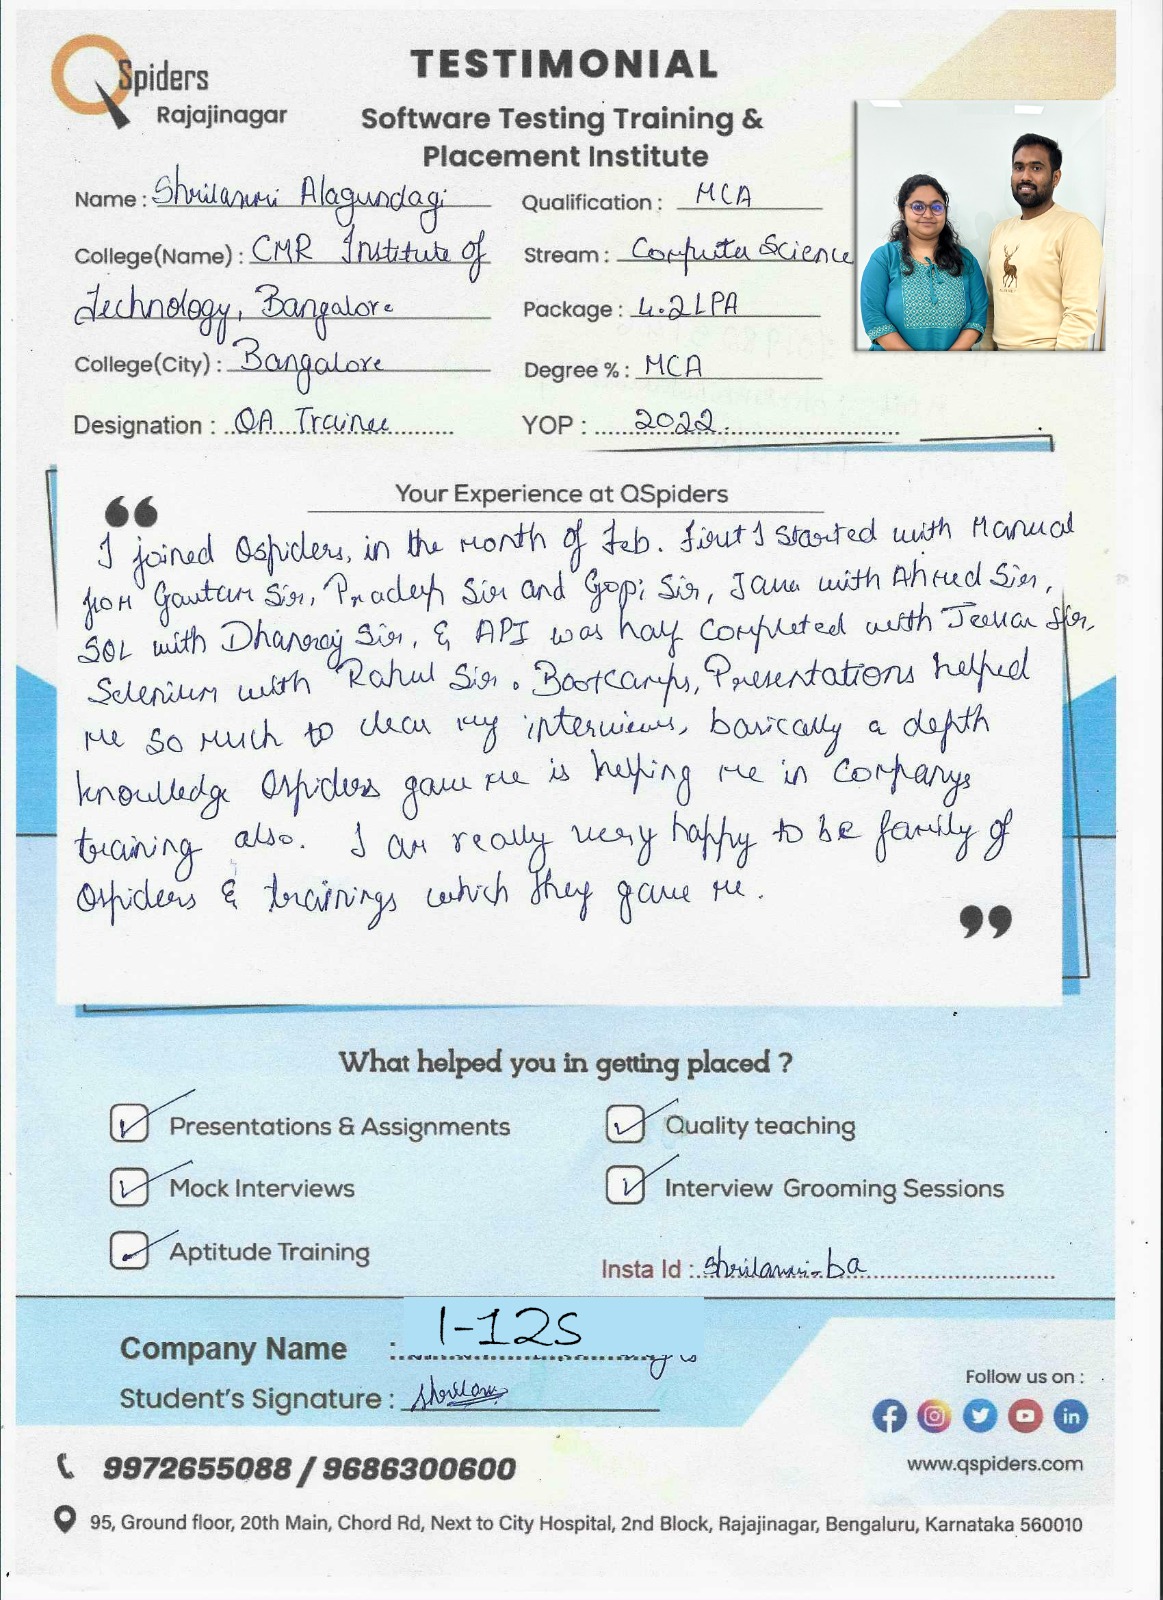 QSpiders
Rajajinagar
TESTIMONIAL
Software Testing Training &
Placement Institute
Name : Alagundagi
Qualification : MCA
College(Name) : CMR Institute of
Technology, Bangalore
Stream : Computer Science
Package : 4.2 LPA
College(City) : Bangalore
Degree % : MCA
Designation : QA Trainee
YOP : 2022.
Your Experience at QSpiders
“
I joined Qspiders, in the month of Feb. First I started with Manual
from Gautam Sir, Pradeep Sir and Gopi Sir, Java with Ahmed Sir,
SQL with Dhanraj Sir, & API was half completed with Jeevan Sir,
Selenium with Rahul Sir. Bootcamps, Presentations helped
me so much to clear my interviews, basically a depth
knowledge Qspiders gave me is helping me in companys
training also. I am really very happy to be family of
Qspiders & trainings which they gave me.
”
What helped you in getting placed ?
Presentations & Assignments
Quality teaching
Mock Interviews
Interview Grooming Sessions
Aptitude Training
Insta Id :
Company Name : I-12S
Student's Signature :
Follow us on :
www.qspiders.com
9972655088 / 9686300600
95, Ground floor, 20th Main, Chord Rd, Next to City Hospital, 2nd Block, Rajajinagar, Bengaluru, Karnataka 560010